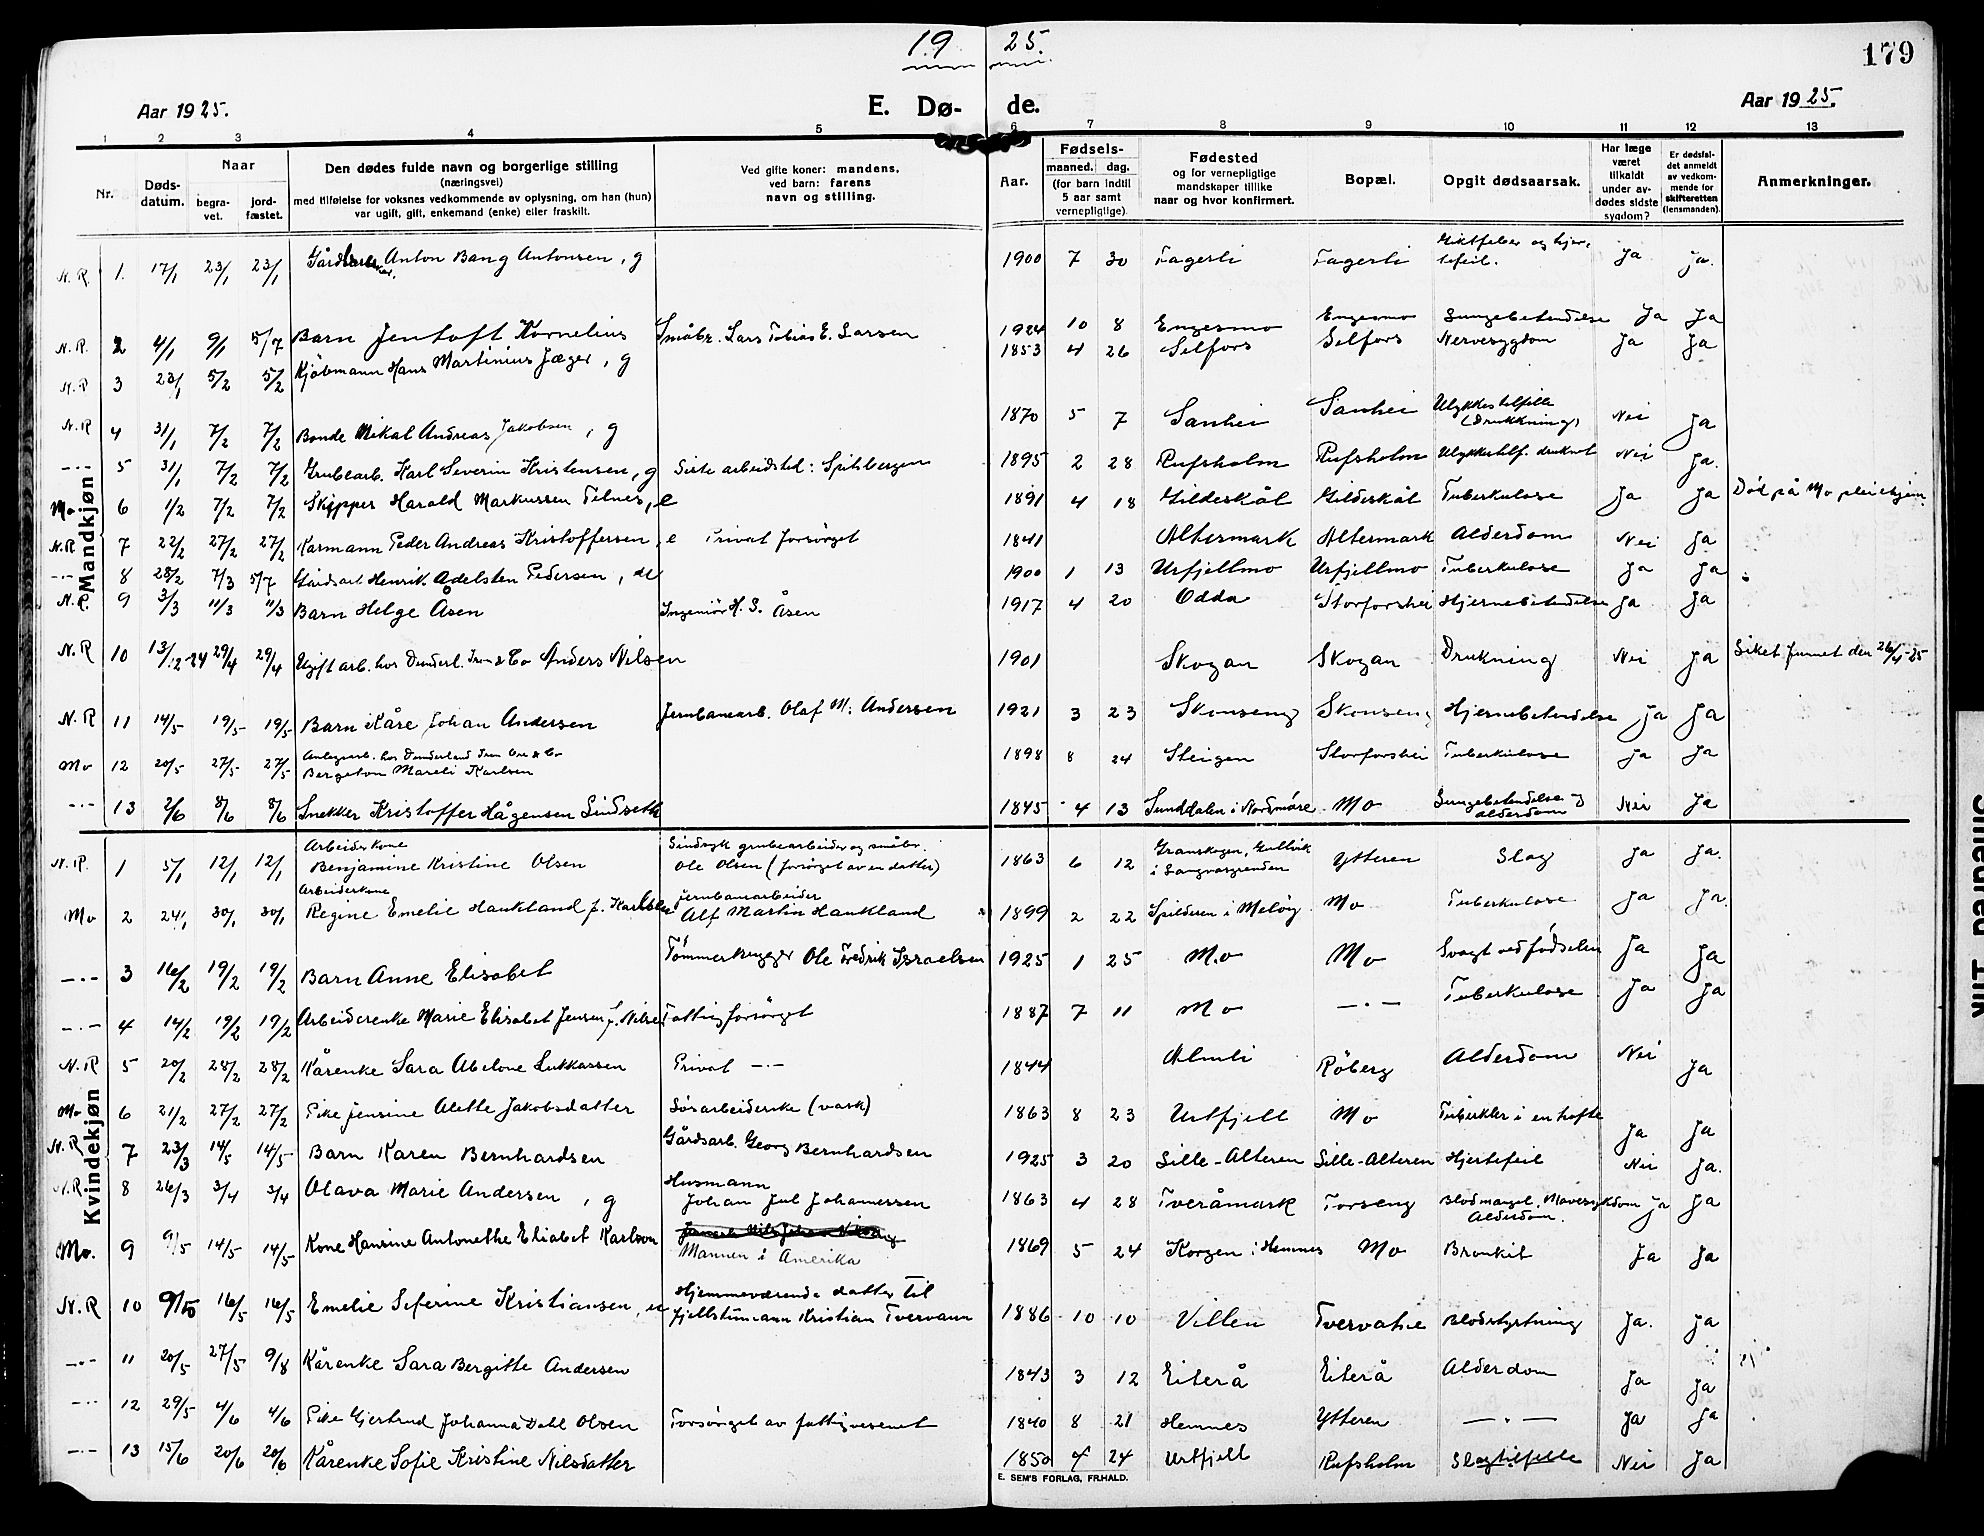 19 25.
179
Aar 1925. E. Dø- de. Aar 1925.
1 2 3 4 5 6 7 8 9 10 11 12 13
Nr. Døds-datum. Naar begra-vet. jord-fæstet. Den dødes fulde navn og borgerlige stilling (næringsvei) med tilføielse for voksnes vedkommende av oplysning, om han (hun) var ugift, gift, enkemand (enke) eller fraskilt. Ved gifte koner: mandens, ved barn: farens navn og stilling. Aar. Fødsels- maaned. dag. (for barn indtil 5 aar samt vernepligtige). Fødested og for vernepligtige mandskaper tillike naar og hvor konfirmert. Bopæl. Opgit dødsaarsak. Har læge været tilkaldt under av-dødes sidste sygdom? Er dødsfal-det anmeldt av vedkom-mende for skifteretten (lensmanden). Anmerkninger.
Mandkjøn
N.R. 1. 17/1 23/1 23/1 Anton Bang Antonsen, g 1900 7 30 Fagerli Fagerli Giktfeber og hjer-tefeil. Ja ja.
N.R. 2 4/1 9/1 5/7 Barn Jentoft Kornelius Småbr. Lars Tobias E. Larsen 1924 10 8 Engesmo Engesmo Lungebetendelse Ja Ja
N.R 3 23/1 5/2 5/2 Kjøbmann Hans Martinius Jæger, g 1853 4 26 Selfors Selfors Nervesygdom Ja Ja
N.R 4 31/1 7/2 7/2 Bonde Mikal Andreas Jakobsen, g 1870 5 7 Sanhei Sanhei Ulykkestilfelle (Drukkning) Nei Ja
-"- 5 31/1 7/2 7/2 Grubearb. Karl Severin Kristensen, g Siste arbeidsted: Spitsbergen 1895 2 28 Rufsholm Rufsholm Ulykketilf. druknet Nei Ja.
Mo 6 1/2 7/2 7/2 Skipper Harald Markussen Telnes, e 1891 4 18 Gildeskål Gildeskål Tuberkulose Ja Ja Død på Mo pleiehjem.
N.R 7 22/2 27/2 27/2 Karmann Peder Andreas Kristoffersen, e Privat forsørget 1841 Altermark Altermark Alderdom Nei Ja
-"- 8 28/2 7/3 5/7 Gårdsarb Henrik Adelsten Pedersen, 1900 1 13 Urfjellmo Urfjellmo Tuberkulose Ja Ja
N.R. 9 3/3 11/3 11/3 Barn Helge Åsen Ingeniør H. S. Åsen 1917 4 20 Odda Storforshei Hjernebetendelse Ja Ja
N.R 10 13/12-24 29/4 29/4 Ugift arb. hos Dunderl. Iron & Co Anders Nilsen 1901 Skogan Skogan Drukning Nei Ja Liket funnet den 26/4-25
N.R 11 14/5 19/5 19/5 Barn Kåre Johan Andersen Jernbanearb. Olaf M. Andersen 1921 3 23 Skonseng Skonseng Hjernebetendelse Ja Ja
Mo 12 20/5 27/5 27/5 Anlegsarb. hos Dunderland Iron Ore & Co Bergeton Mareli Karlsen 1898 8 24 Steigen Storforshei Tuberkulose Ja Ja
-"- 13 2/6 8/6 8/6 Snekker Kristoffer Hågensen Lindseth 1845 4 13 Sunddalen i Nordmøre Mo Lungebetendelse og alderdom Nei Ja
Kvindekjøn
N.R. 1 5/1 12/1 12/1 Arbeiderkone Benjamine Kristine Olsen Sindsyk grubearbeider og småbr. Ole Olsen (forsørget av en datter) 1863 6 12 Granskogen, i Langvasgrenden Ytteren Slag Ja Ja.
Mo 2 24/1 30/1 30/1 Arbeiderkone Regine Emelie Haukland f. Jernbanearbeider Alf Martin Haukland 1899 2 22 Spilderen i Meløy Mo Tuberkulose Ja Ja.
-"- 3 16/2 19/2 19/2 Barn Anne Elisabet Tømmerhugger Ole Fredrik Israelsen 1925 1 25 Mo Mo Svagt ved fødselen Ja Ja
-"- 4 14/2 19/2 19/2 Arbeiderenke Marie Elisabet Jensen f. Nilsen Fattigforsørget 1887 7 11 Mo -"- Tuberkulose Ja Ja
N.R 5 20/2 28/2 28/2 Kårenke Sara Abelone Lukkassen Privat -"- 1844 Almli Røberg Alderdom Nei Ja
Mo 6 21/2 27/2 27/2 Pike Jensine Alette Jakobsdatter (vask) 1863 8 23 Urtfjell Mo Tuberkler i en hofte Ja Ja
N.R 7 23/3 14/5 14/5 Barn Karen Bernhardsen Gårdsarb. Georg Bernhardsen 1925 3 20 Lille-Alteren Lille-Alteren Hjertefeil Nei Ja.
N.R. 8 26/3 3/4 3/4 Olava Marie Andersen, g Husmann Johan Jul Johannessen 1863 4 28 Tveråmark Forseng Blodmangel, Mavesykdom Alderdom. Ja Ja
Mo. 9 9/5 14/5 14/5 Kone Hansine Antonethe Elisabet Karlson Mannen i Amerika 1869 5 24 Korgen i Hemnes Mo Bronkit Ja Ja
N.R 10 9/5 16/5 16/5 Emelie Seferine Kristiansen, Hjemmeværende datter til fjellstumann Kristian Tvervann 1886 10 10 Villen Blodstyrtning Ja. Ja
-"- 11 20/5 27/5 9/8 Kårenke Sara Bergitte Andersen 1843 3 12 Eiterå Eiterå Alderdom Ja Ja
-"- 12 29/5 4/6 4/6 Pike Gjertrud Johanna Dahl Olsen Forsørget av fattigvesenet 1840 8 21 Hemnes Ytteren -"- Ja Ja
-"- 13 15/6 20/6 20/6 Kårenke Sofie Kristine Nilsdatter 1850 4 24 Urtfjell Rufsholm Slagtilfelle Nei Ja
E. SEM'S FORLAG, FR.HALD.